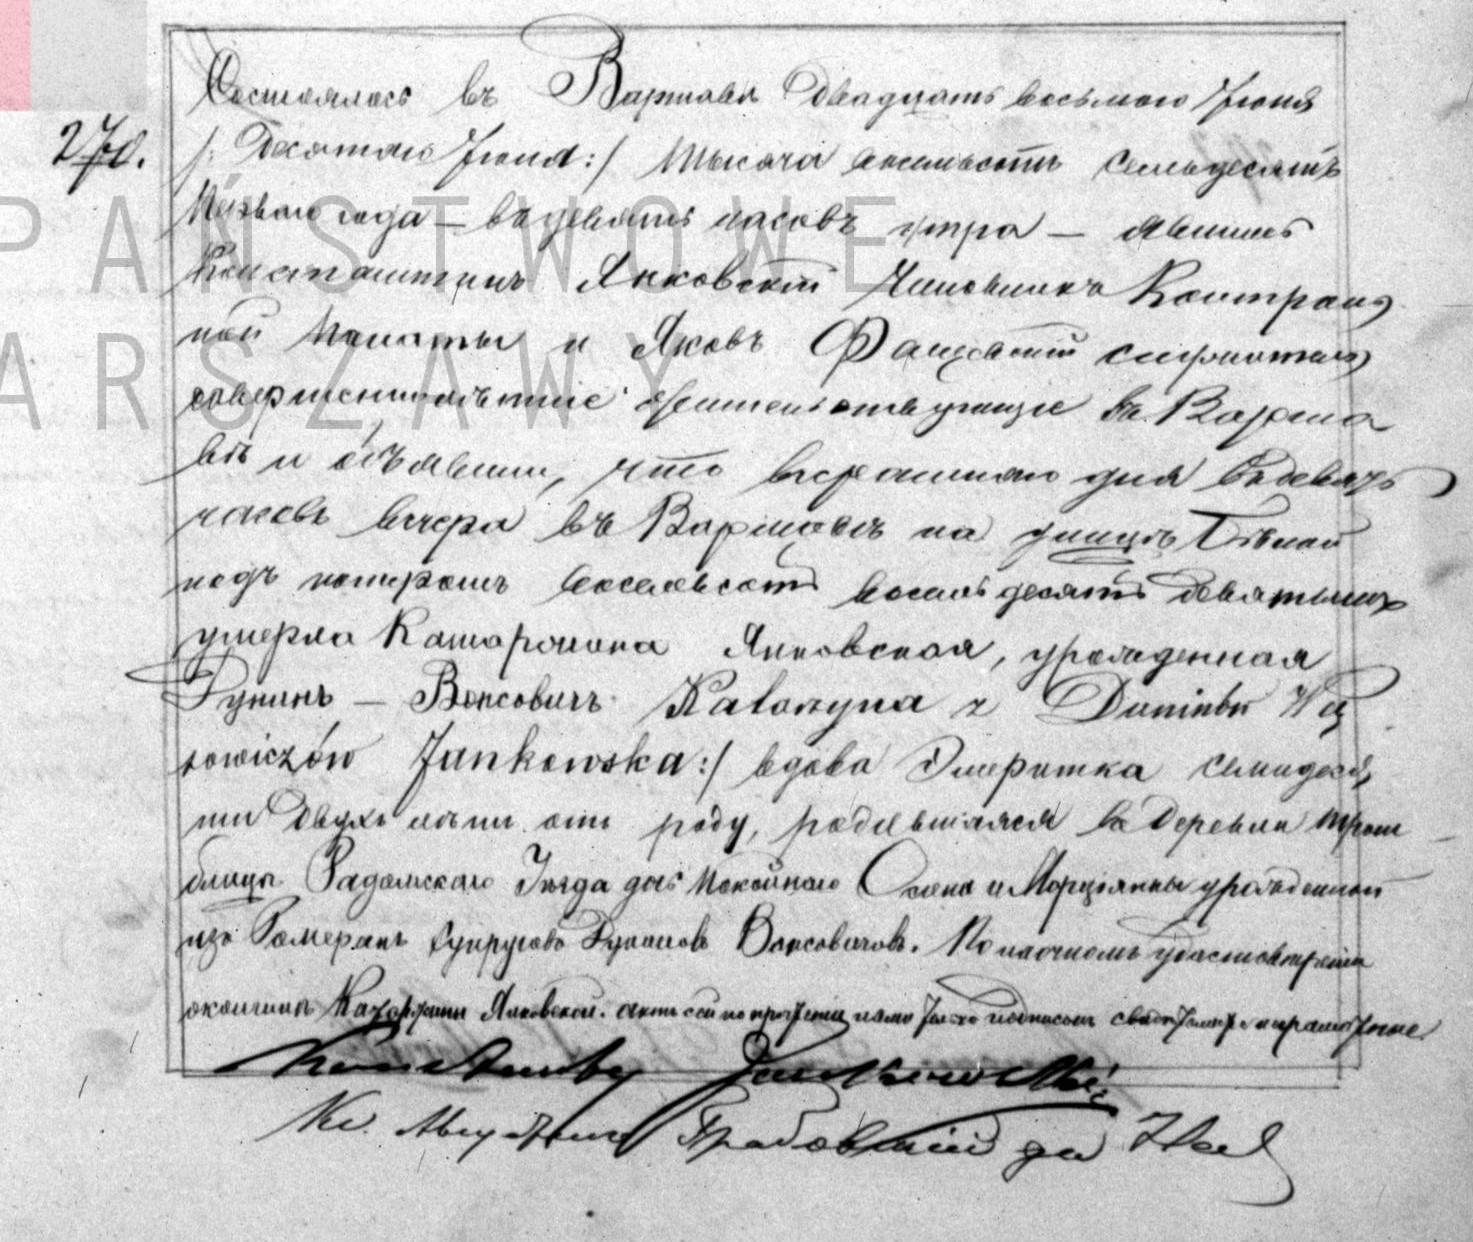 270.
Состоялось въ Варшавѣ двадцать восьмаго Іюня
/: Десятаго Іюня :/ тысяча восемьсотъ семьдесятъ
Перваго года — въ девять часовъ утра — явились
Константинъ Янковскій Чиновникъ Контроль
ной Палаты и Яковъ
совершеннолѣтніе жительствующіе въ Варша
вѣ и объявили, что вчерашняго дня въ девять
часовъ вечера въ Варшавѣ на улицѣ
подъ номеромъ восемьсотъ восемьдесятъ девятымъ
умерла Катаржина Янковская, урожденная
Дунинъ — Вонсовичъ Katarzyna z Duninów Wą
sowiczów Jankowska :/ вдова Эмеритка семидеся
ти двухъ лѣтъ отъ роду, родившаяся въ деревни
Радомскаго Уѣзда дочь покойнаго и Марціянны урожденной
изъ супруговъ Дуниновъ Вонсовичовъ. По наочномъ удостовѣреніи
о кончинѣ Катаржины Янковской. актъ сей по прочтеніи нами только подписанъ неграмотные
Konstanty Jankowski
Кс.